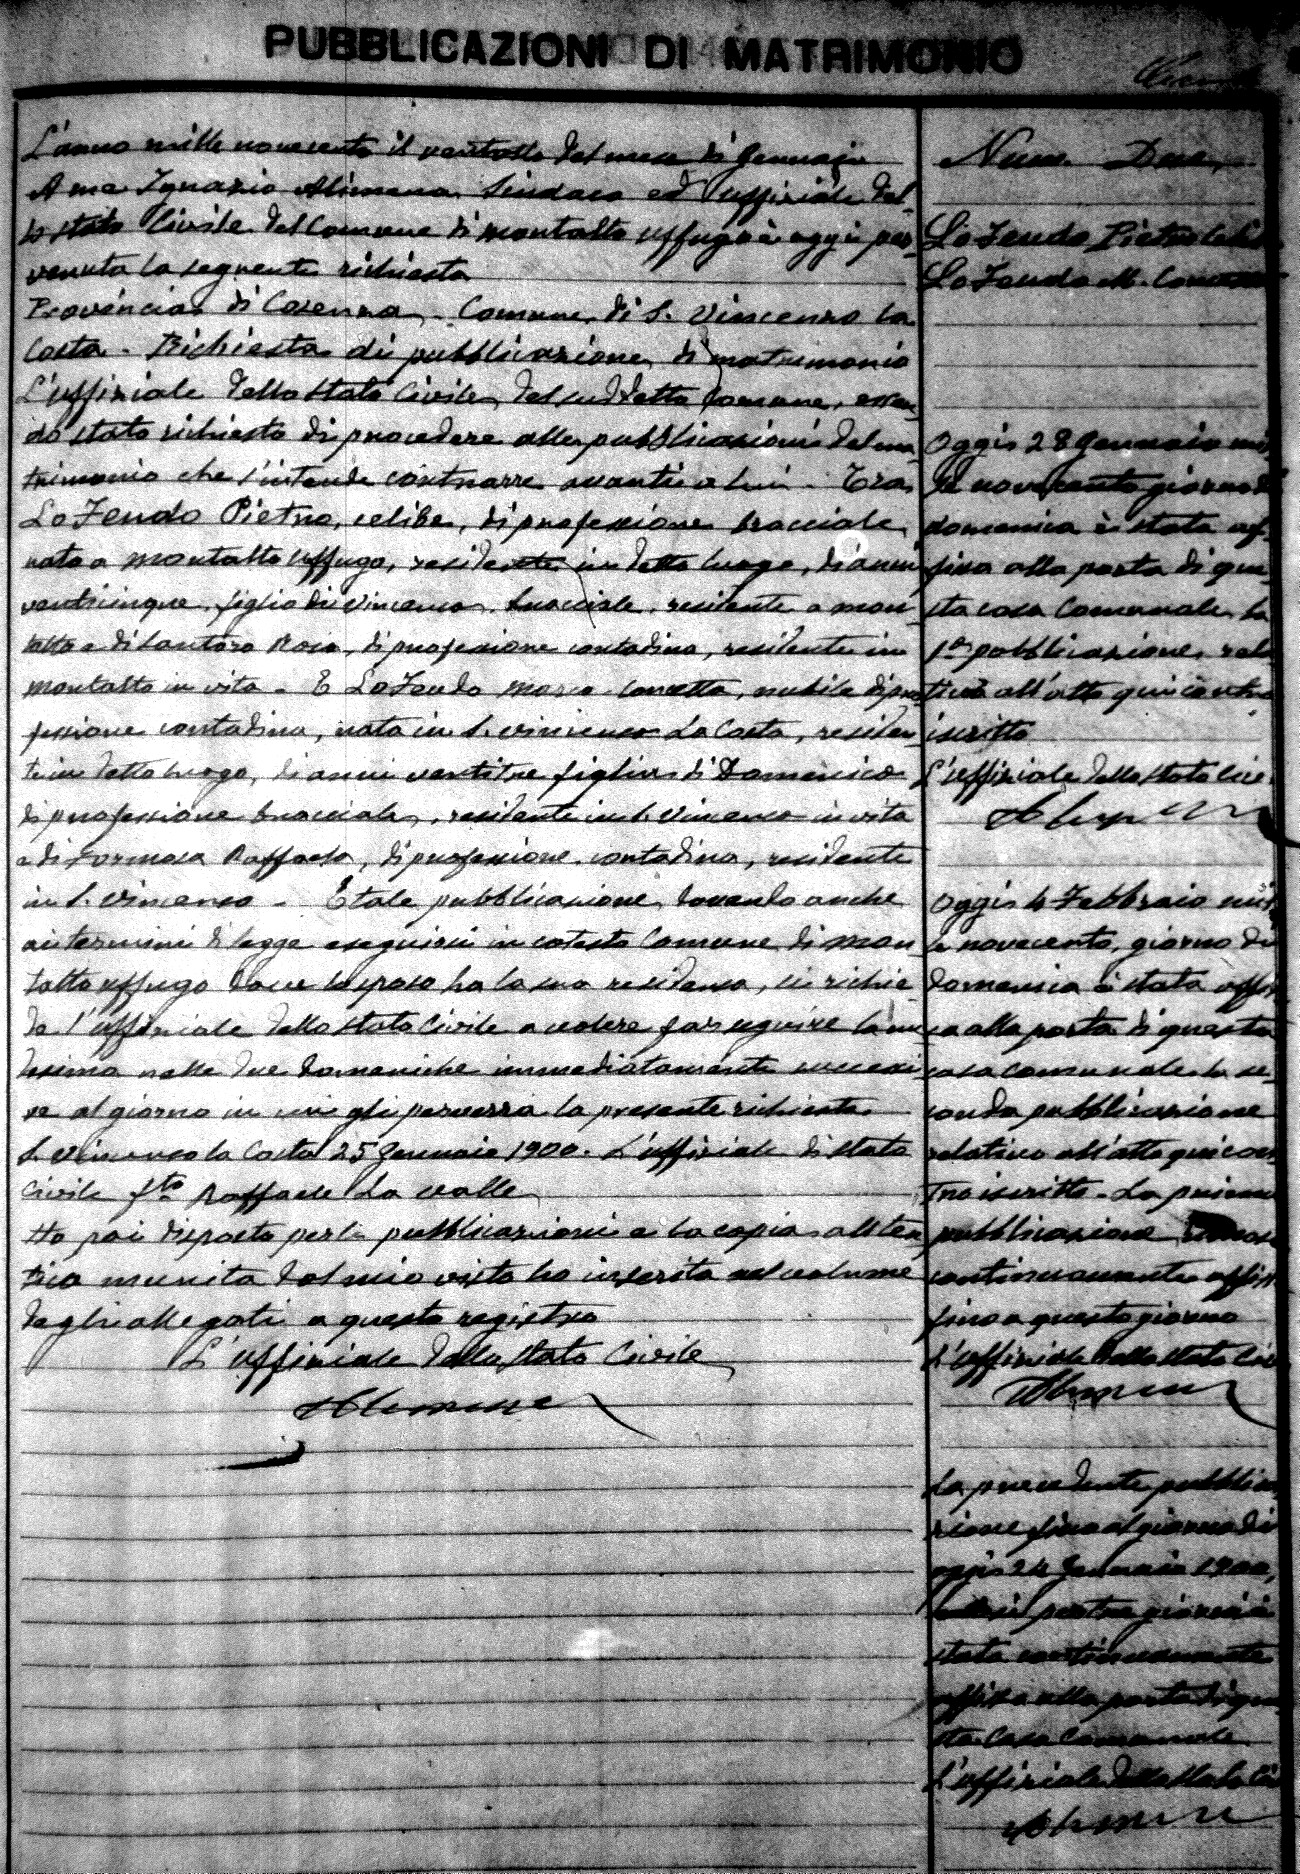 PUBBLICAZIONI DI MATRIMONIO
L'anno mille novecento il ventotto del mese di Gennajo
A me Ignazio Alimena Sindaco ed Uffiziale del-
lo stato Civile del Comune di Montalto Uffugo è oggi per-
venuta la seguente richiesta
Provincia di Cosenza - Comune di S. Vincenzo la
Costa - Richiesta di pubblicazione di matrimonio
L'uffiziale dello stato Civile del suddetto Comune, essen-
do stato richiesto di procedere alle pubblicazioni del ma-
trimonio che s'intende contrarre avanti a lui - Tra
Lo Feudo Pietro, celibe, di professione bracciale,
nato a Montalto Uffugo, residente in detto luogo, di anni
venticinque, figlio di Vincenzo, bracciale, residente a Mon-
talto e di Santoro Rosa, di professione contadina, residente in
Montalto in vita - E Lo Feudo Maria Concetta, nubile di pro-
fessione contadina, nata in S. Vincenzo La Costa, residen-
te in detto luogo, di anni ventitre figlia di Domenico
di professione bracciale, residente in S. Vincenzo in vita
e di Formosa Raffaela, di professione contadina, residente
in S. Vincenzo - E tale pubblicazione dovendo anche
ai termini di legge eseguirsi in cotesto Comune di Mon-
talto Uffugo dove lo sposo ha la sua residenza, si richie-
de l'uffiziale dello stato Civile a volere far seguire la me-
desima nelle due domeniche immediatamente successi-
ve al giorno in cui gli perverrà la presente richiesta
S. Vincenzo la Costa 25 Gennaio 1900. L'uffiziale di stato
Civile f.to Raffaele La Valle
Ho poi disposto per le pubblicazioni e la copia auten-
tica munita dal mio visto ho inserita nel volume
degli allegati a questo registro
L'uffiziale dello stato Civile
Alimena
Num. Due
Lo Feudo Pietro
Lo Feudo M. Concetta
Oggi 28 Gennaio mil-
le novecento giorno di
domenica è stata af-
fissa alla porta di que-
sta casa Comunale la
1a pubblicazione rela-
tiva all'atto qui contro
iscritto
L'Uffiziale dello stato Civ.
Alimena
Oggi 4 Febbraio mil-
le novecento, giorno di
domenica è stata affis-
sa alla porta di questa
casa comunale la se-
conda pubblicazione
relativa all'atto qui con-
tro iscritto - La prima
pubblicazione rimase
continuamente affissa
fino a questo giorno
L'uffiziale dello stato Civ.
Alimena
La precedente pubblica-
zione fino al giorno di
oggi 24 Gennaio 1900,
per tre giorni è
stata continuamente
affissa alla porta di que-
sta Casa Comunale
L'uffiziale dello stato Civ
Alimena